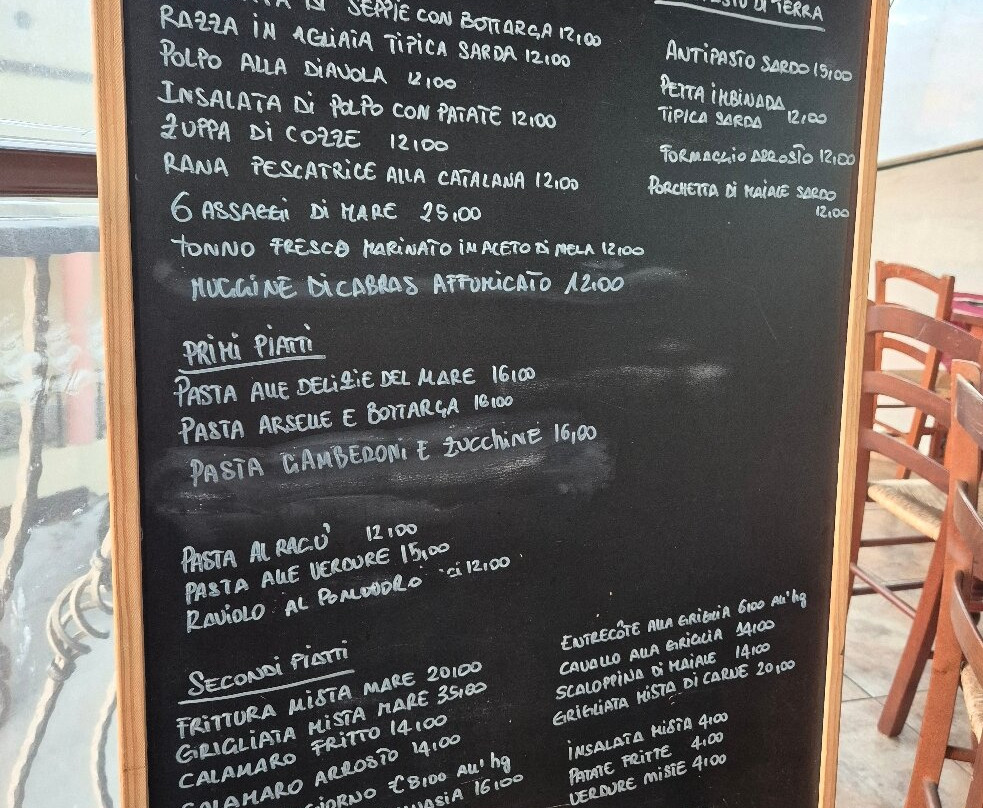 SEPPIE CON BOTTARGA 12,00
RAZZA IN AGLIATA TIPICA SARDA 12,00
POLPO ALLA DIAVOLA 12,00
INSALATA DI POLPO CON PATATE 12,00
ZUPPA DI COZZE 12,00
RANA PESCATRICE ALLA CATALANA 12,00
6 ASSAGGI DI MARE 25,00
TONNO FRESCO MARINATO IN ACETO DI MELA 12,00
MUGGINE DI CABRAS AFFUMICATO 12,00
DI TERRA
ANTIPASTO SARDO 15,00
PETTA IMBINADA
TIPICA SARDA 12,00
FORMAGGIO ARROSTO 12,00
PORCHETTA DI MAIALE SARDO
12,00
PRIMI PIATTI
PASTA ALLE DELIZIE DEL MARE 16,00
PASTA ARSELLE E BOTTARGA 16,00
PASTA GAMBERONI E ZUCCHINE 16,00
PASTA AL RAGU' 12,00
PASTA ALLE VERDURE 15,00
RAVIOLO AL POMODORO 12,00
SECONDI PIATTI
FRITTURA MISTA MARE 20,00
GRIGLIATA MISTA MARE 35,00
CALAMARO FRITTO 14,00
CALAMARO ARROSTO 14,00
GIORNO €8,00 ALL'hg
16,00
ENTRECÔTE ALLA GRIGLIA 6,00 ALL'hg
CAVALLO ALLA GRIGLIA 14,00
SCALOPPINA DI MAIALE 14,00
GRIGLIATA MISTA DI CARNE 20,00
INSALATA MISTA 4,00
PATATE FRITTE 4,00
VERDURE MISTE 4,00